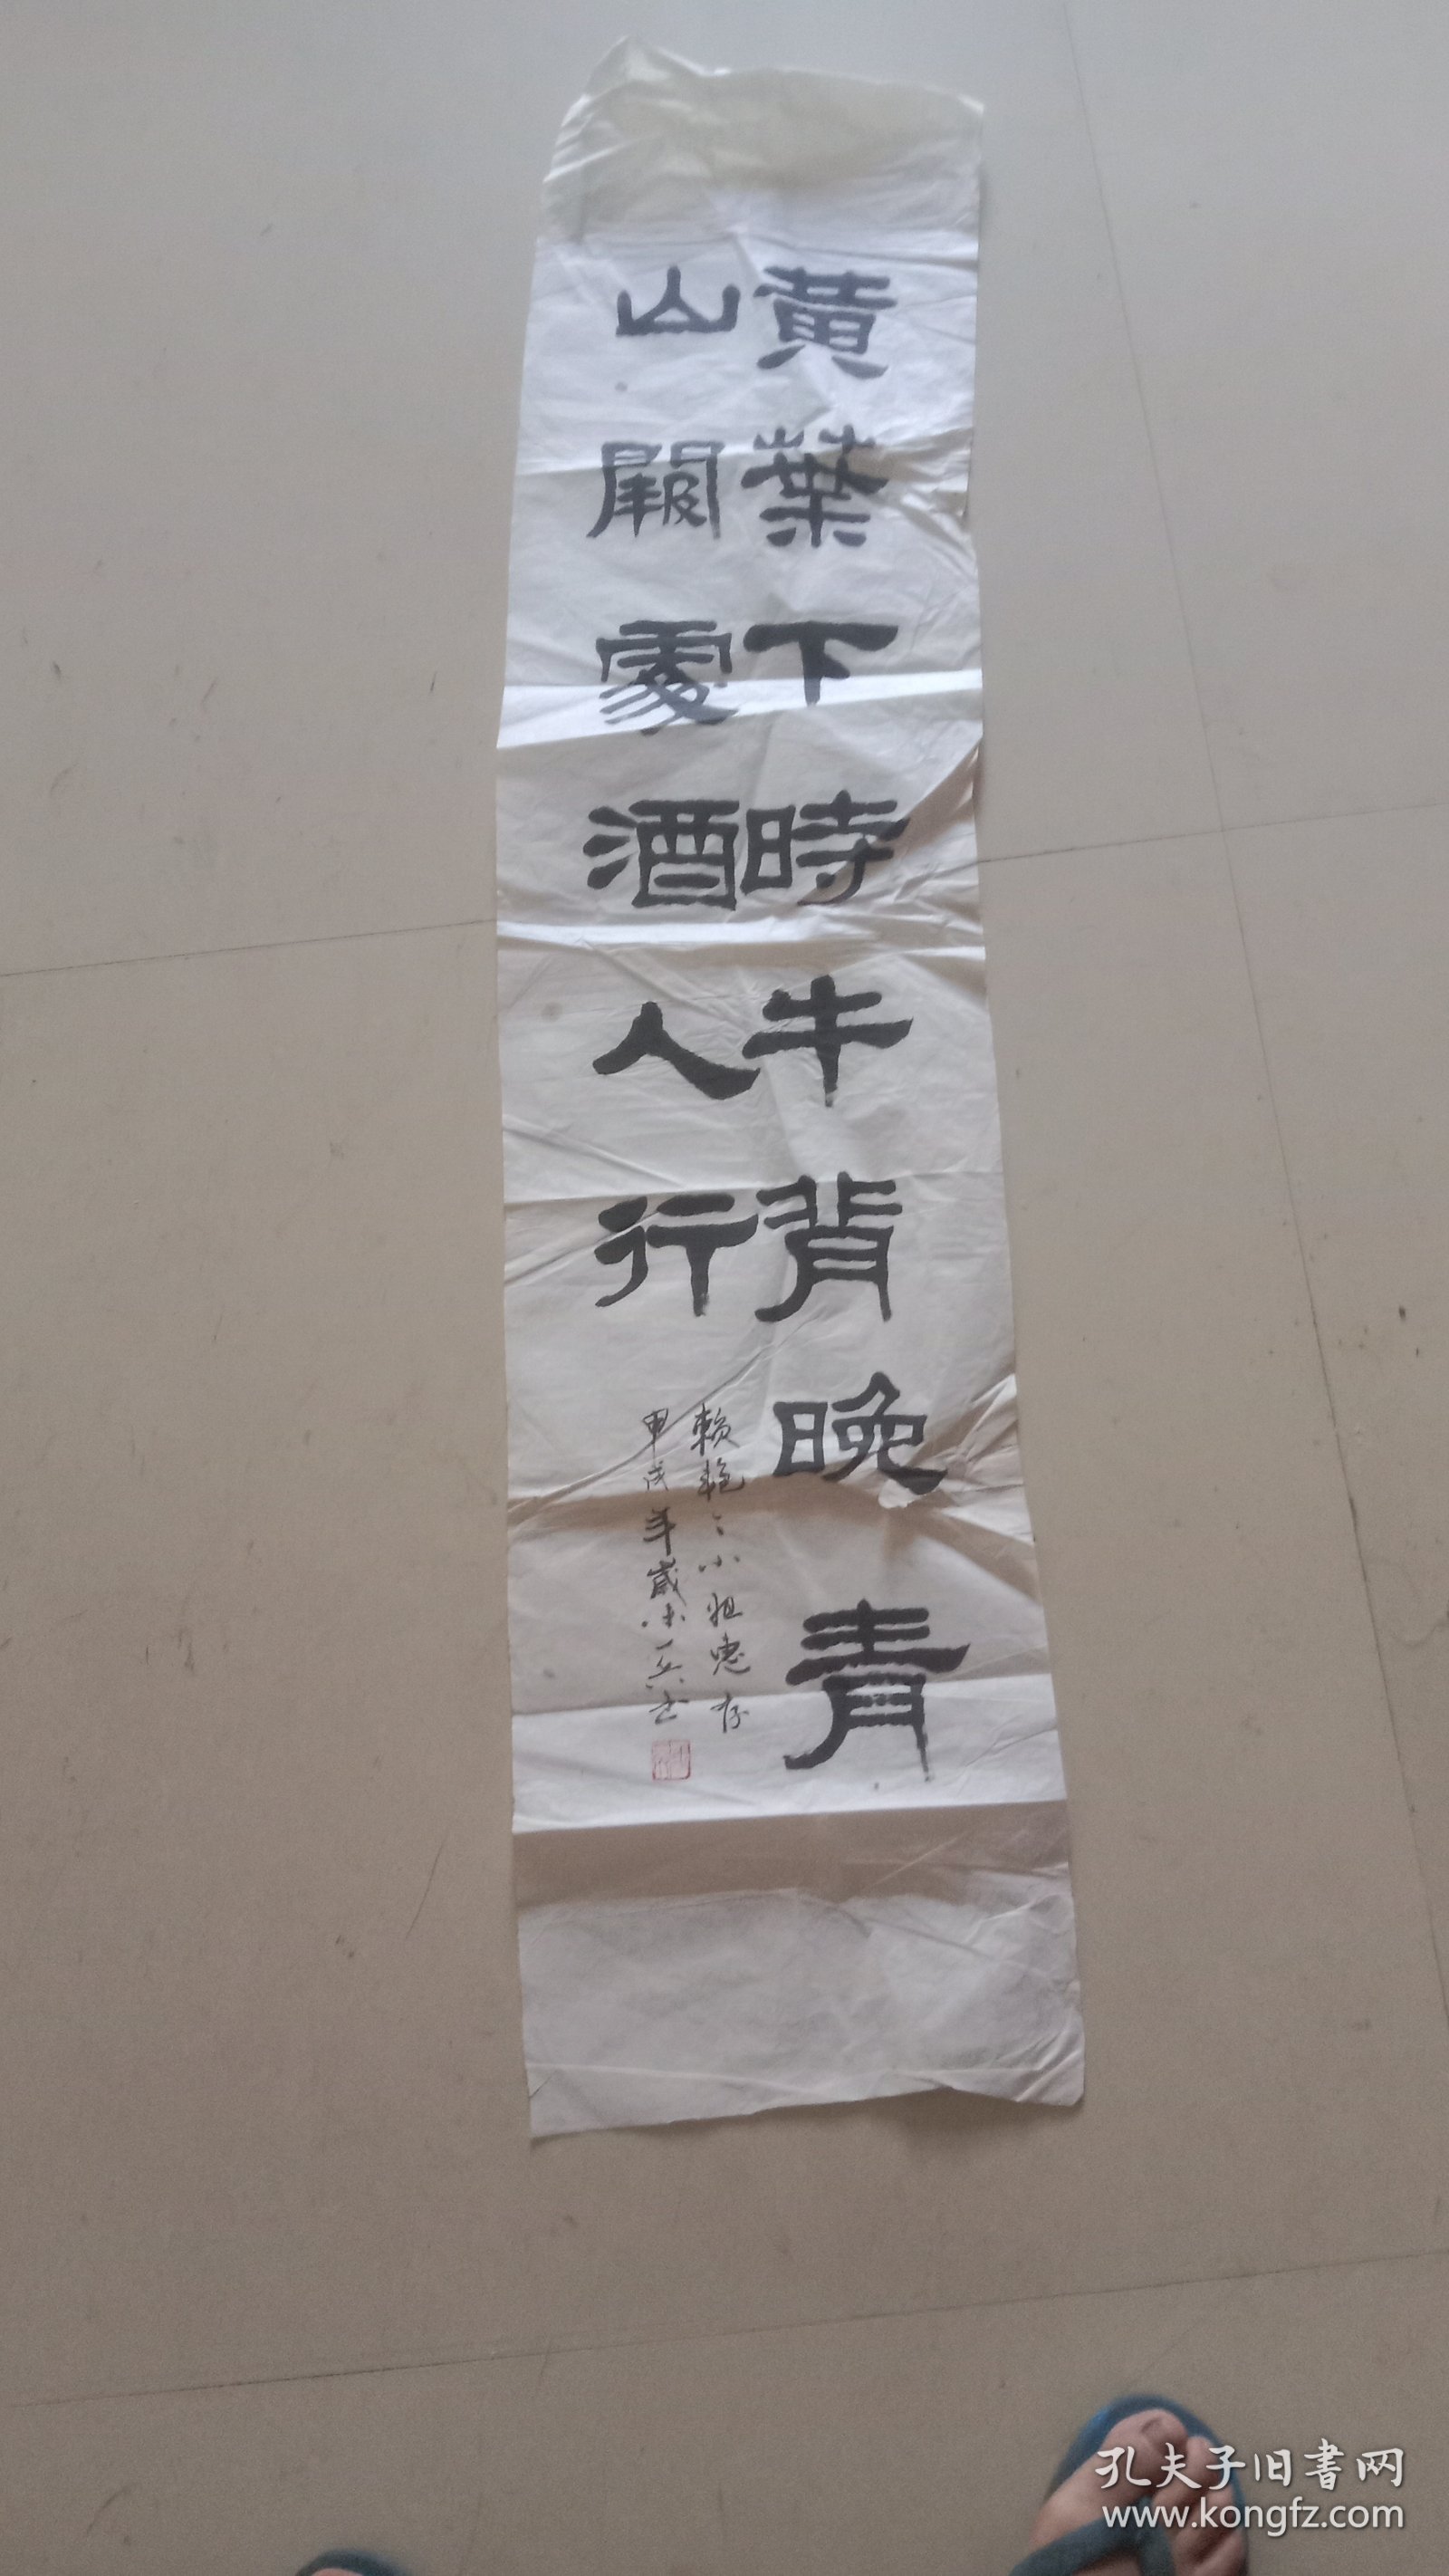 黃葉下時牛背晚青
山闕處酒人行
赖艳〻小姐惠存
甲戌年歲末一兵书
孔夫子旧書网
www.kongfz.com